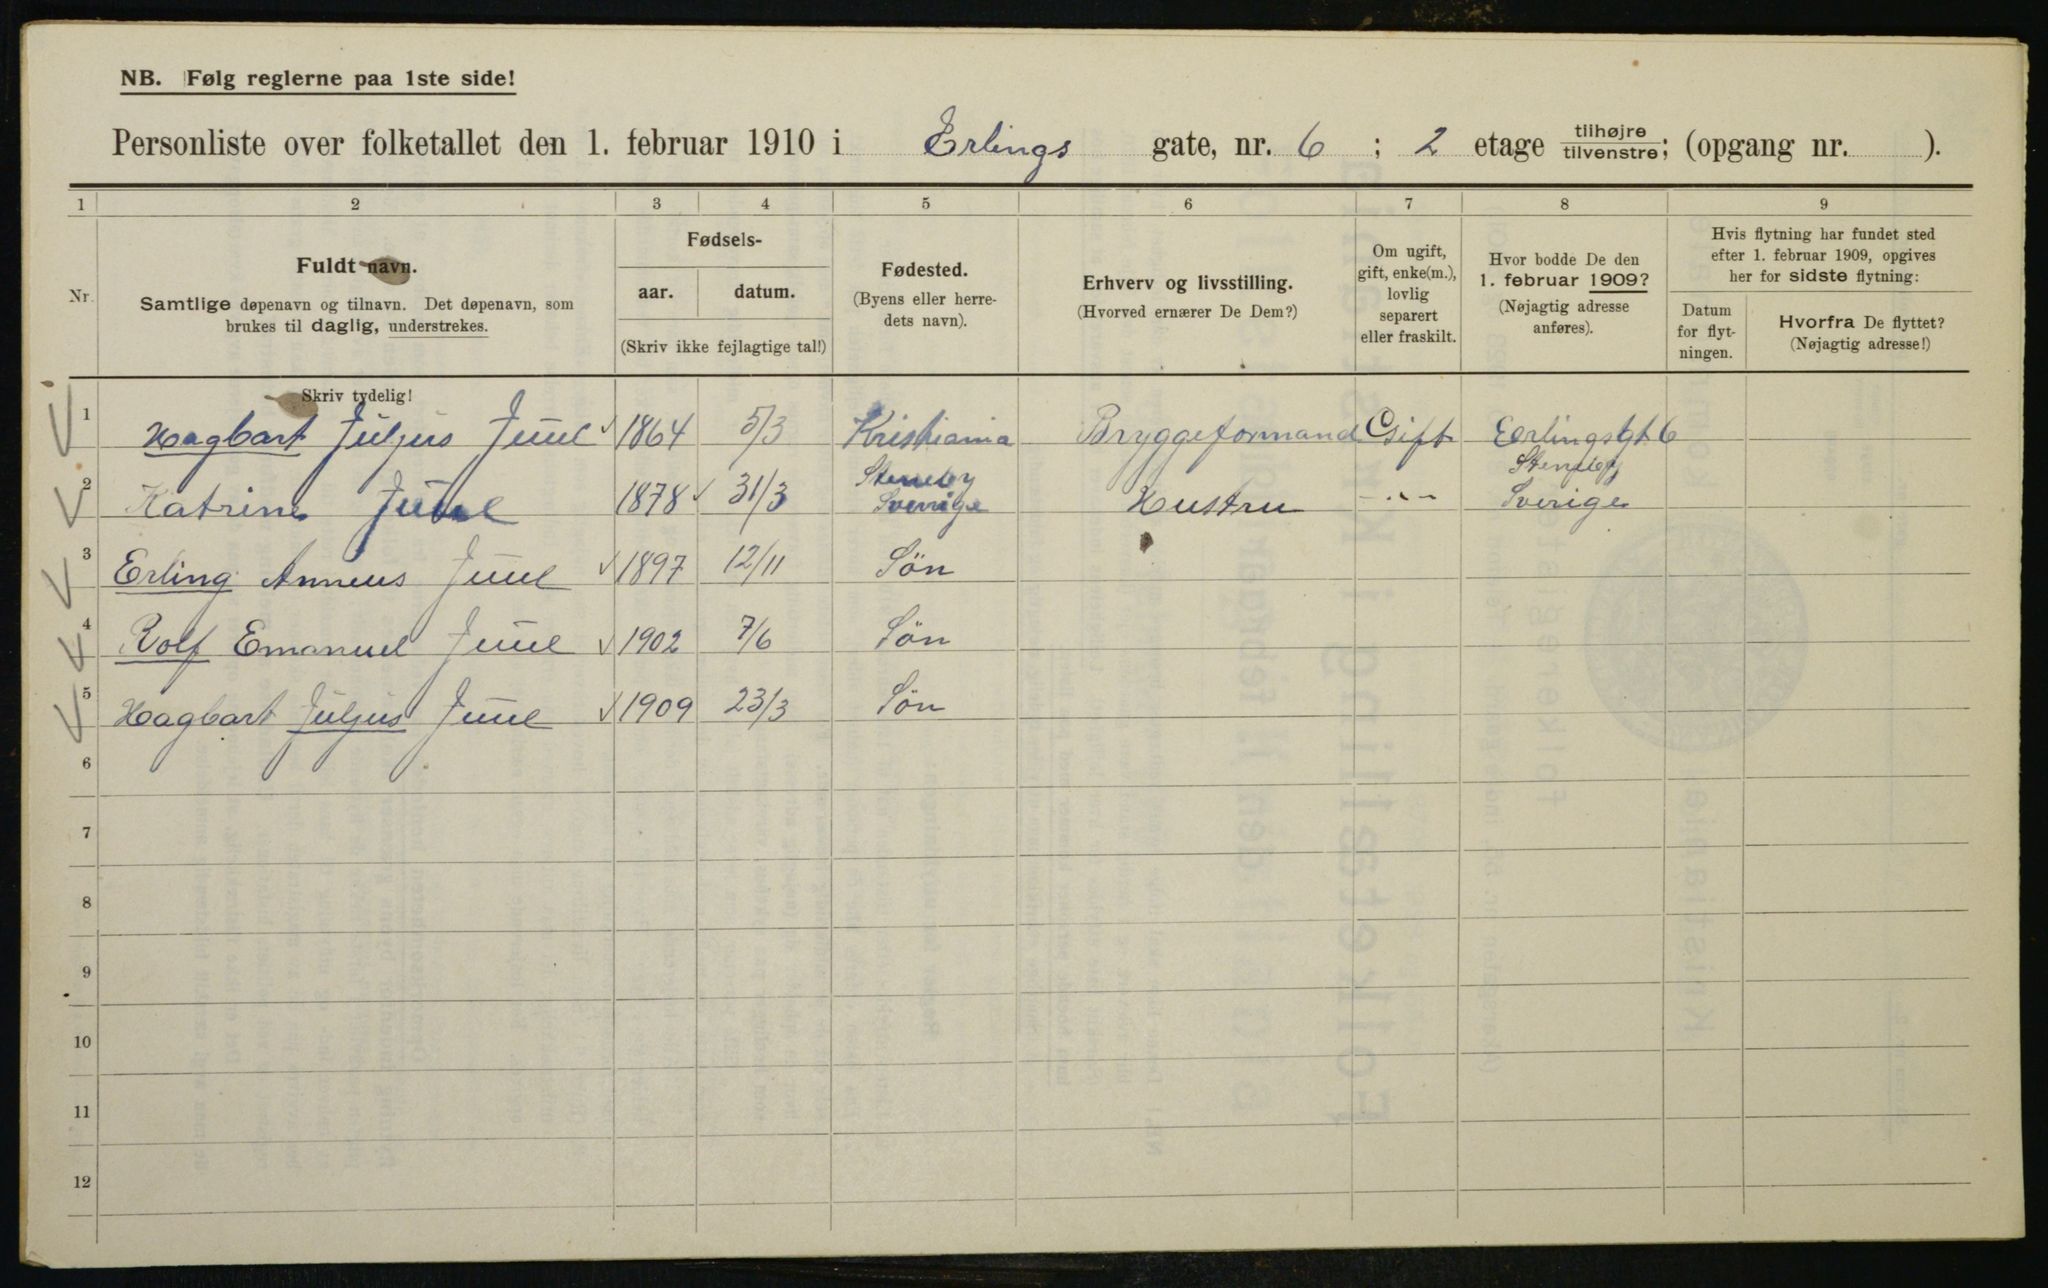 NB. Følg reglerne paa 1ste side!
Personliste over folketallet den 1. februar 1910 i Erlings gate, nr. 6 ; 2 etage tilhøjre tilvenstre; (opgang nr. ).
1 2 3 4 5 6 7 8 9
Nr.
Fuldt navn.
Samtlige døpenavn og tilnavn. Det døpenavn, som
brukes til daglig, understrekes.
Fødsels-
aar. datum.
(Skriv ikke fejlagtige tal!)
Fødested.
(Byens eller herre-
dets navn).
Erhverv og livsstilling.
(Hvorved ernærer De Dem?)
Om ugift,
gift, enke(m.),
lovlig
separert
eller fraskilt.
Hvor bodde De den
1. februar 1909?
(Nøjagtig adresse
anføres).
Hvis flytning har fundet sted
efter 1. februar 1909, opgives
her for sidste flytning:
Datum
for flyt-
ningen.
Hvorfra De flyttet?
(Nøjagtig adresse!)
Skriv tydelig!
1 Hagbart Juljus Juul 1864 5/3 Kristiania Bryggeformand Gift Erlingsgt 6
2 Katrine Juul 1878 31/3 Steneby Sverige Hustru -"- Steneby Sverige
3 Erling Anneus Juul 1897 12/11 Sön
4 Rolf Emanuel Juul 1902 7/6 Sön
5 Hagbart Juljus Juul 1909 23/3 Sön
6
7
8
9
10
11
12